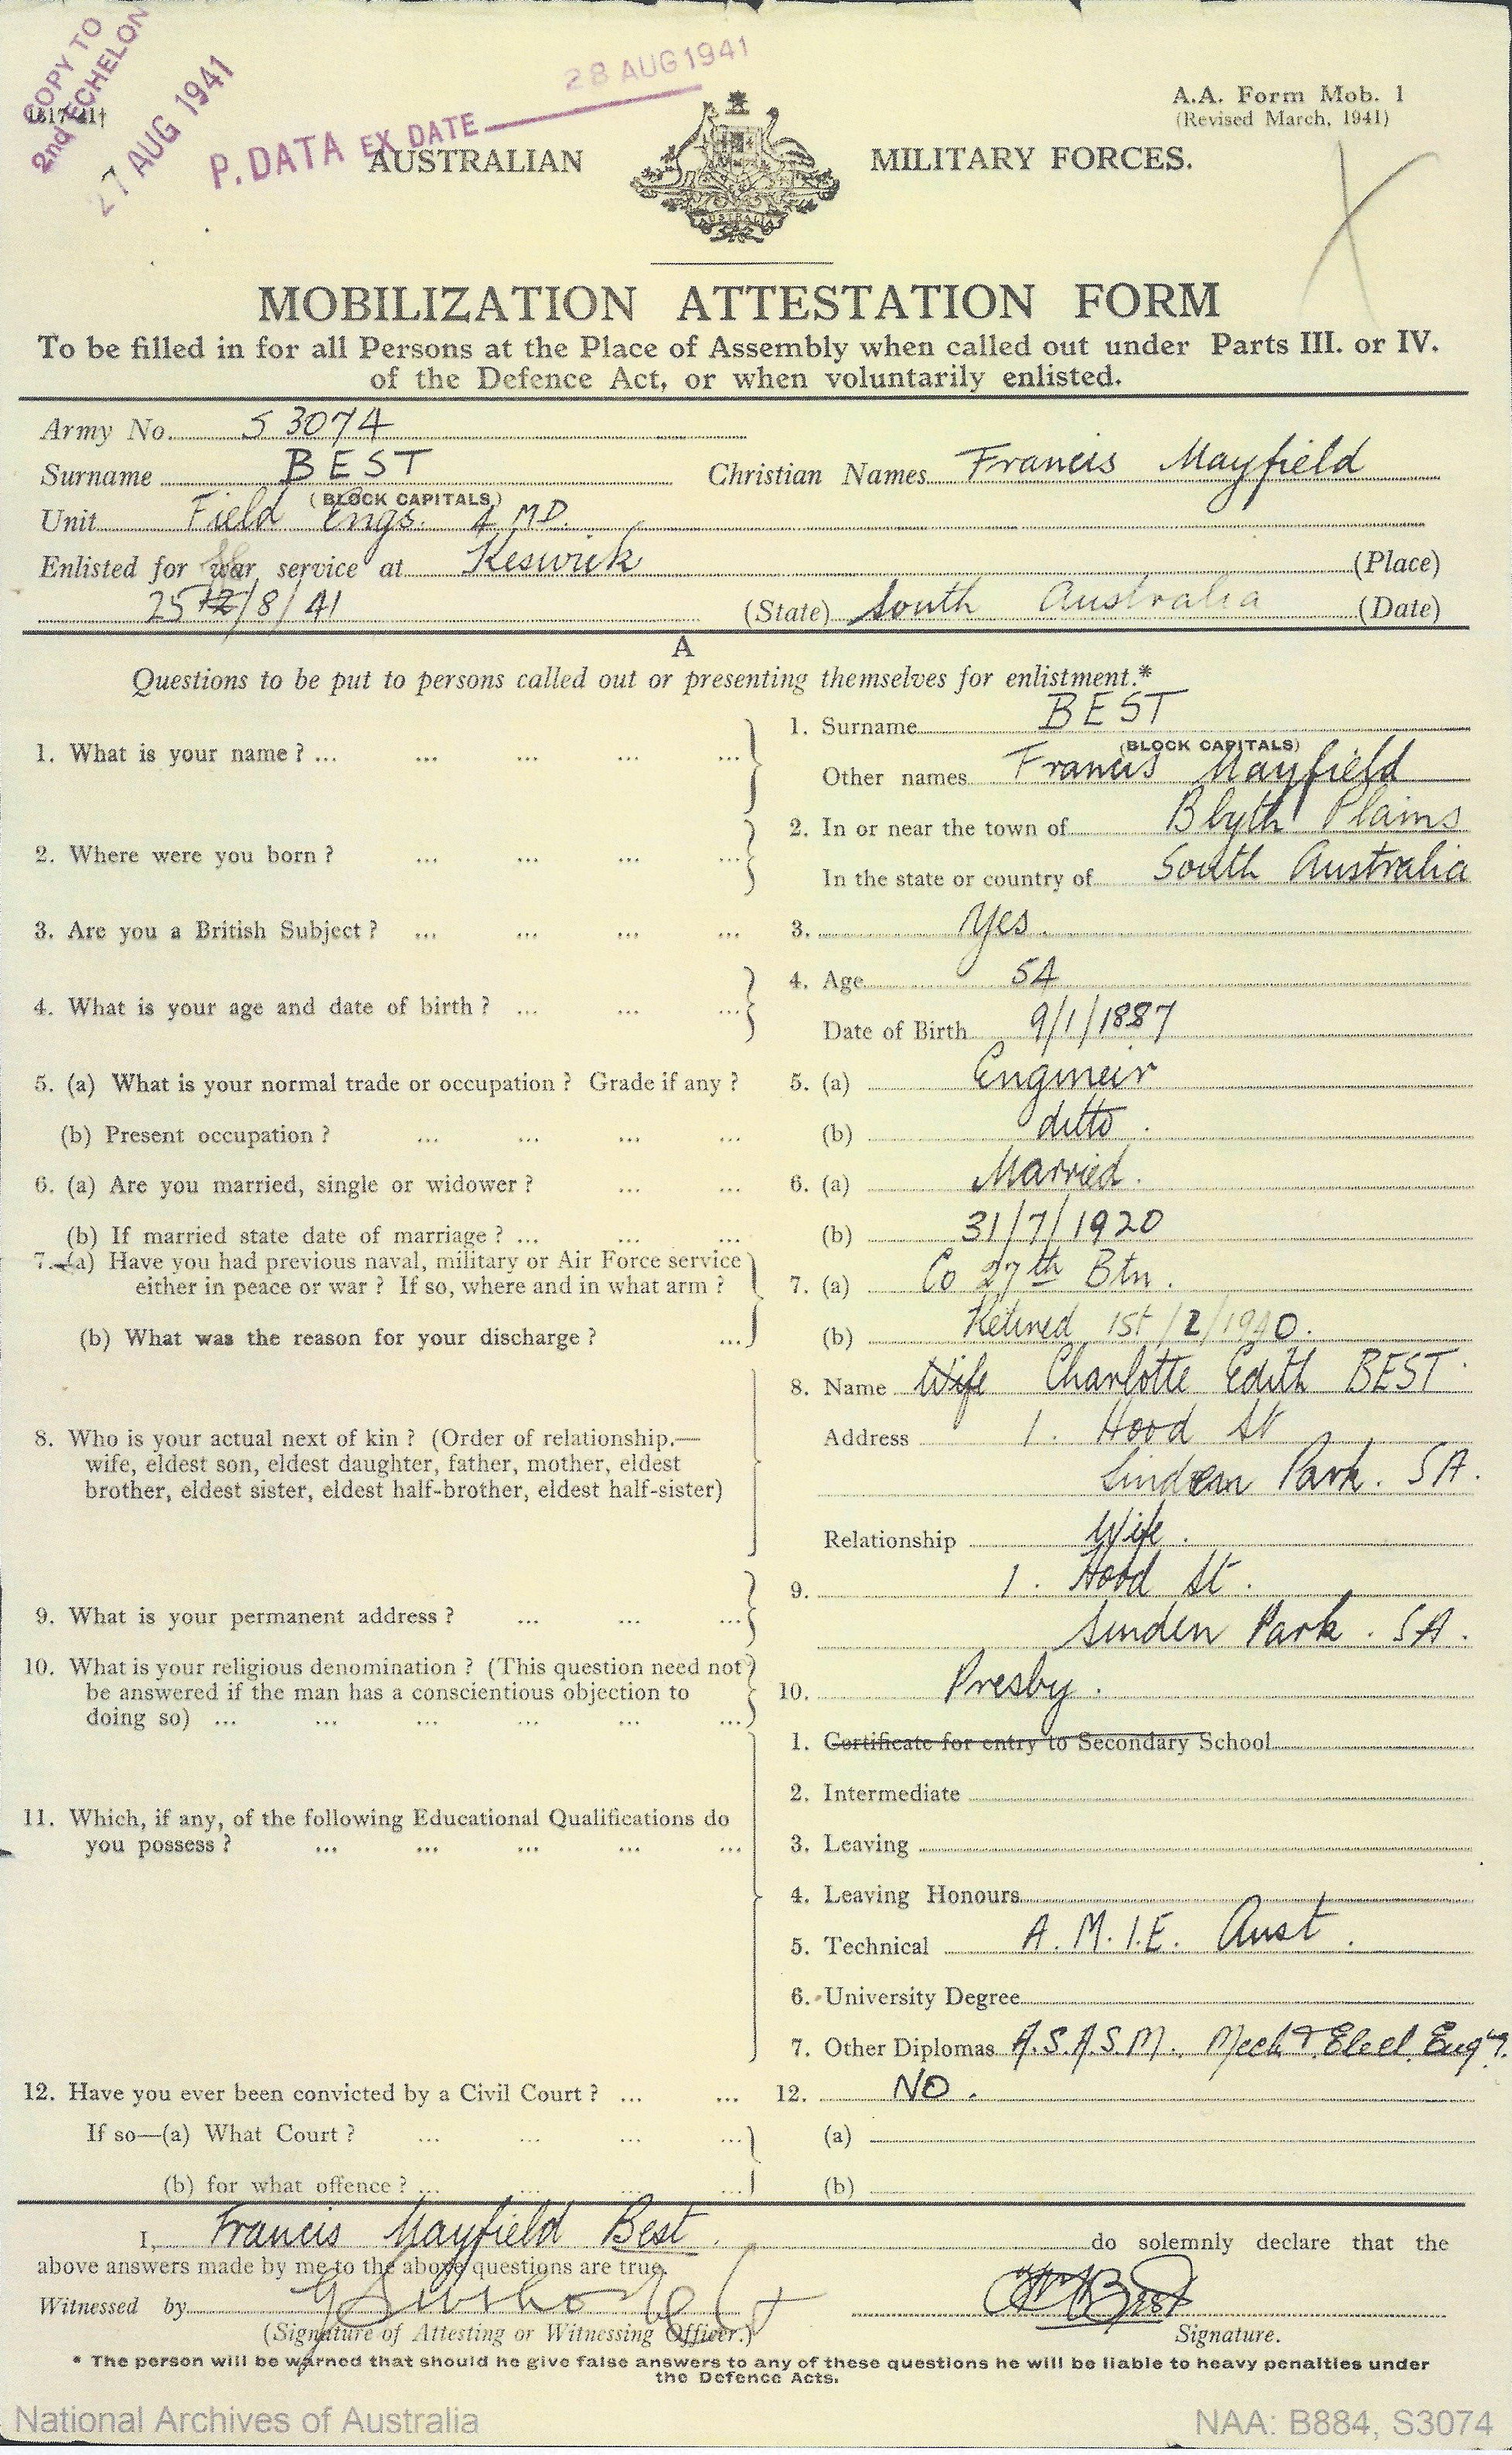 COPY TO
2nd ECHELON
27 AUG 1941
P. DATA EX DATE
28 AUG 1941
A.A. Form Mob. 1
(Revised March, 1941)
AUSTRALIAN MILITARY FORCES.
AUSTRALIA
MOBILIZATION ATTESTATION FORM
To be filled in for all Persons at the Place of Assembly when called out under Parts III. or IV.
of the Defence Act, or when voluntarily enlisted.
Army No. S 3074
Surname BEST Christian Names Francis Mayfield
(BLOCK CAPITALS)
Unit Field Engs. 4 M.D.
Enlisted for war service at Keswick (Place)
25/8/41 (State) South Australia (Date)
A
Questions to be put to persons called out or presenting themselves for enlistment.*
1. What is your name? ... 1. Surname BEST
(BLOCK CAPITALS)
Other names Francis Mayfield
2. Where were you born? 2. In or near the town of Blyth Plains
In the state or country of South Australia
3. Are you a British Subject? 3. Yes.
4. What is your age and date of birth? 4. Age 54
Date of Birth 9/1/1887
5. (a) What is your normal trade or occupation? Grade if any? 5. (a) Engineer
(b) Present occupation? (b) ditto.
6. (a) Are you married, single or widower? 6. (a) Married.
(b) If married state date of marriage? ... (b) 31/7/1920
7. (a) Have you had previous naval, military or Air Force service
either in peace or war? If so, where and in what arm? 7. (a) Co 27th Btn.
(b) What was the reason for your discharge? (b) Retired 1st/2/1940.
8. Name Wife Charlotte Edith BEST
8. Who is your actual next of kin? (Order of relationship.— Address 1. Hood St
wife, eldest son, eldest daughter, father, mother, eldest
brother, eldest sister, eldest half-brother, eldest half-sister) Linden Park. SA.
Relationship Wife.
9. What is your permanent address? 9. 1. Hood St.
Linden Park. SA.
10. What is your religious denomination? (This question need not
be answered if the man has a conscientious objection to 10. Presby.
doing so) ...
1. Certificate for entry to Secondary School
2. Intermediate
11. Which, if any, of the following Educational Qualifications do
you possess? 3. Leaving
4. Leaving Honours
5. Technical A.M.I.E. Aust.
6. University Degree
7. Other Diplomas A.S.A.S.M. Mech & Elecl. Eng'g.
12. Have you ever been convicted by a Civil Court? ... 12. NO.
If so—(a) What Court? (a)
(b) for what offence? ... (b)
I, Francis Mayfield Best do solemnly declare that the
above answers made by me to the above questions are true.
Witnessed by
(Signature of Attesting or Witnessing Officer.) Signature.
* The person will be warned that should he give false answers to any of these questions he will be liable to heavy penalties under
the Defence Acts.
National Archives of Australia NAA: B884, S3074